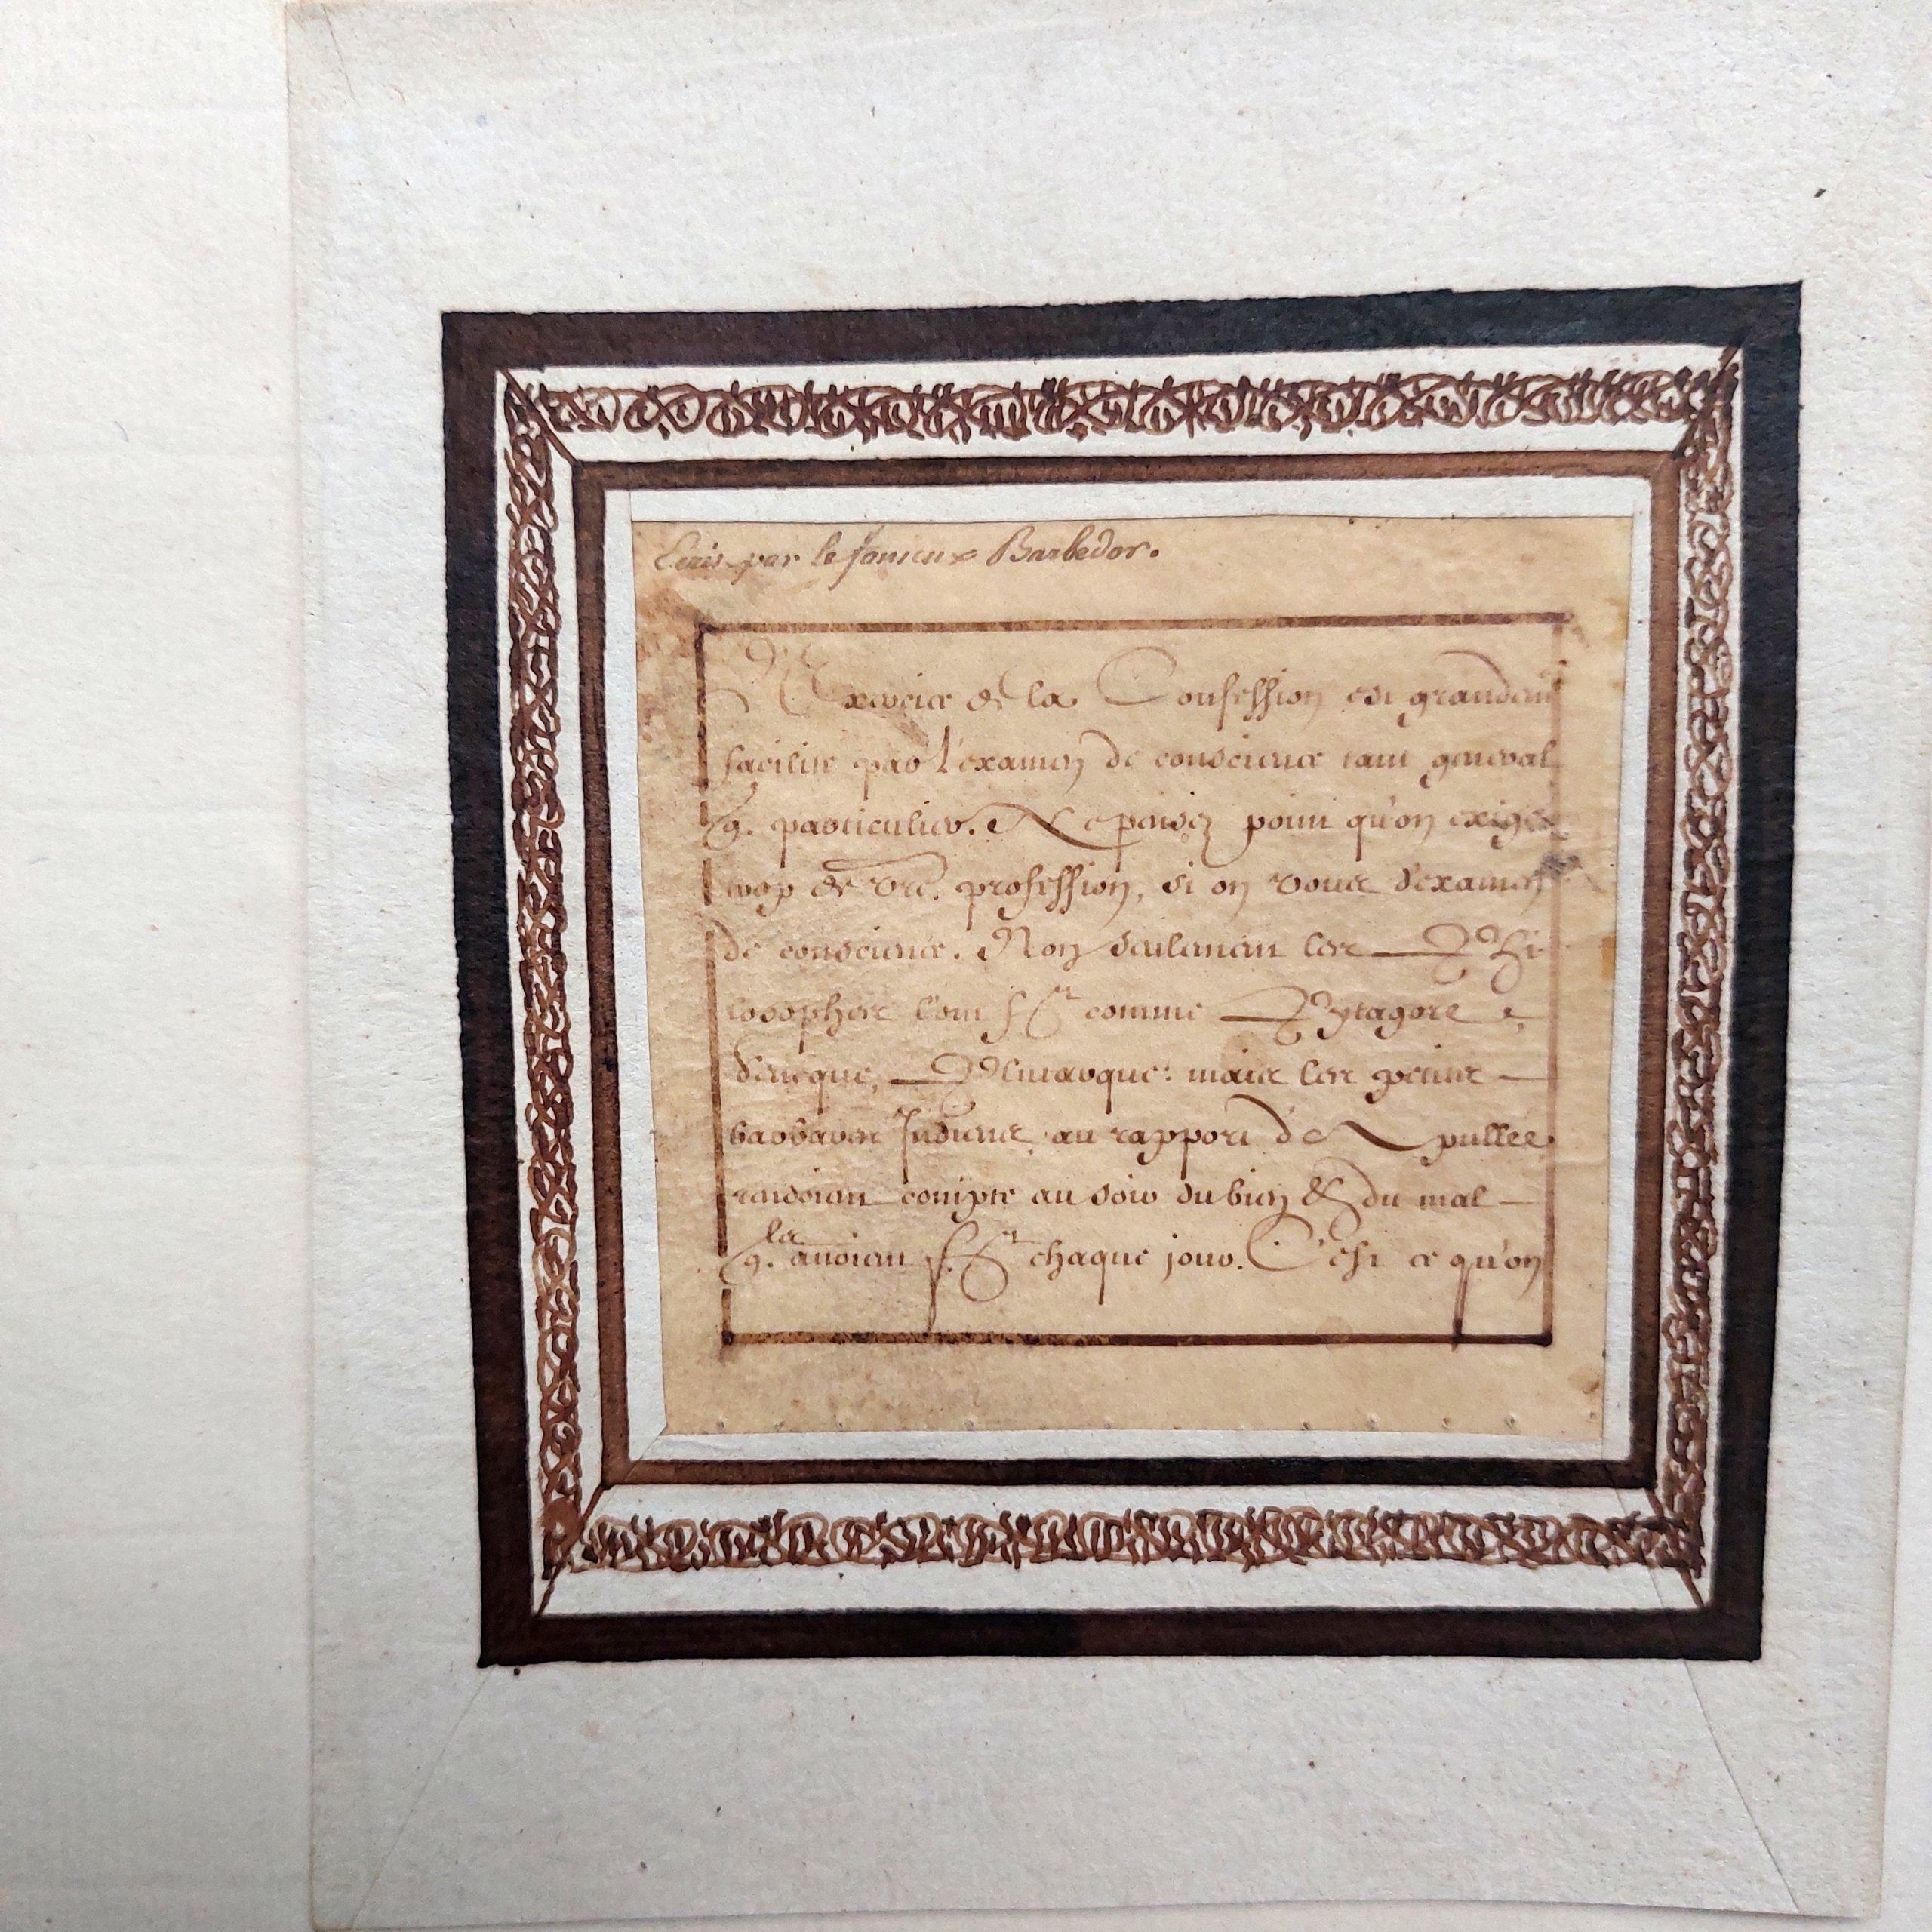 Ecris par le fameux Barbedor.
L'Exercice de la Confession est grandemt
facilite par l'examen de conscience tant general
q. particulier. Ne pensez point qu'on exige
trop de vre. profession, si on vous d'examen
de conscience. Non seulement les Phi
losophes l'ont ff comme Pytagore
Seneque, Plutarque: mais les petits
barbares Indiens au rapport d'Apullée
rendoient compte au soir du bien & du mal
q. les auoient ff chaque jour. C'est ce qu'on